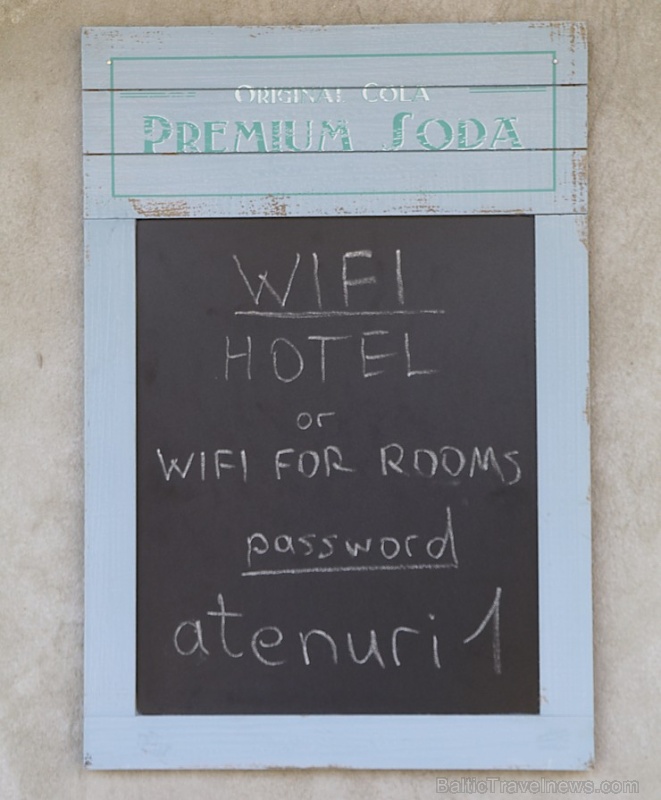 ORIGINAL COLA
PREMIUM SODA
WIFI
HOTEL
or
WIFI FOR ROOMS
password
atenuri 1
BalticTravelnews.com